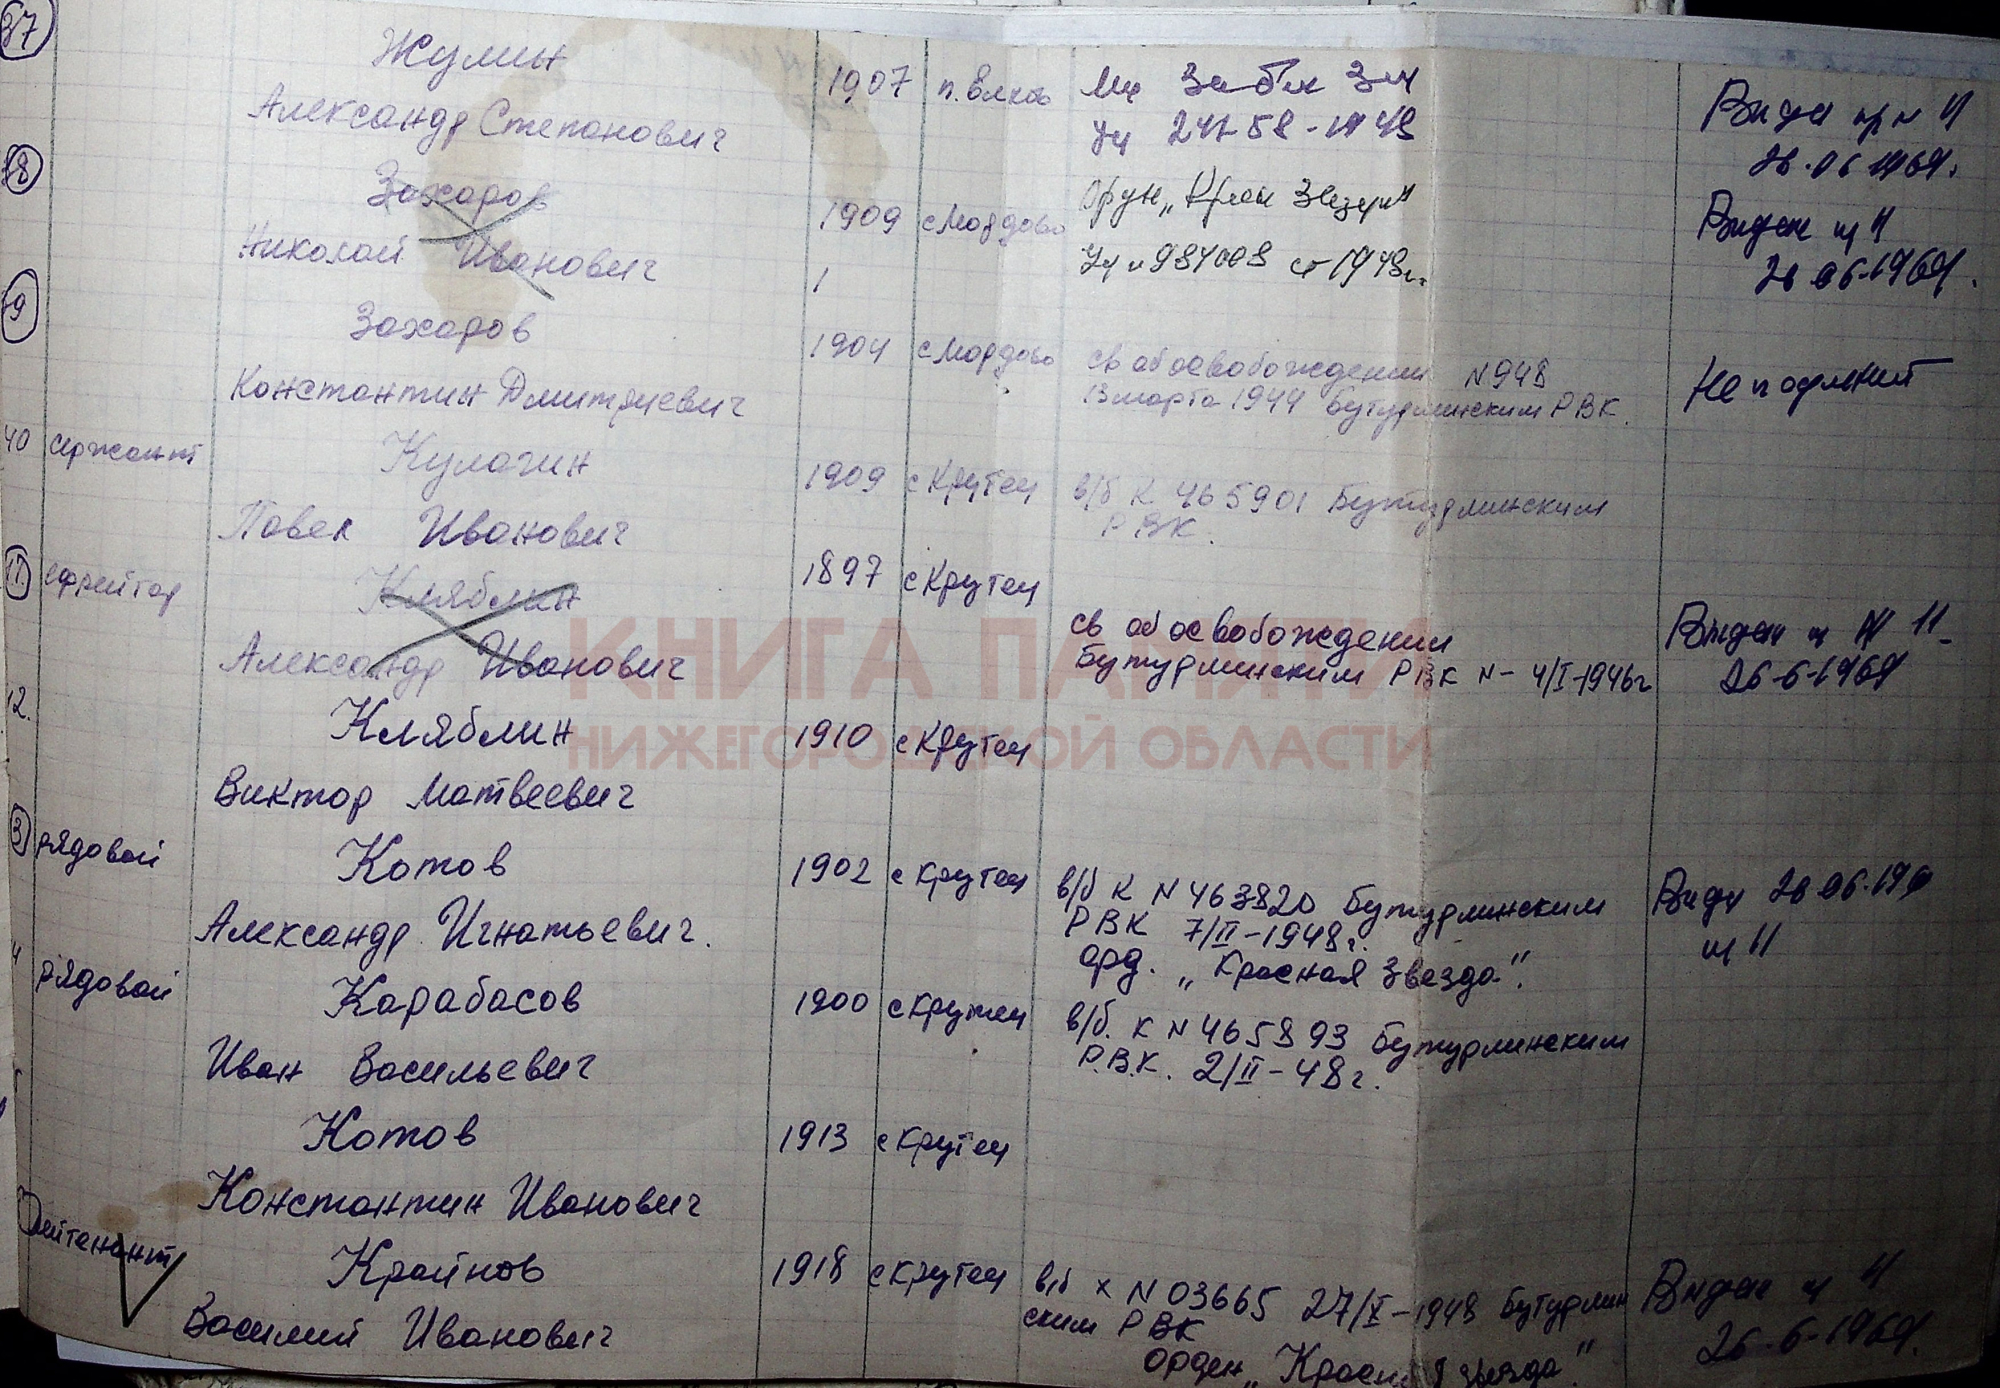 37
Жулин
Александр Степанович
1907
Уч
38
Захаров
Николай Иванович
1909
с Мордово
9
Захаров
Константин Дмитриевич
1904
с Мордово
св об освобождении N 948
13 марта 1944 Бутурлинским РВК.
Не подлежит
40
сержант
Кулагин
Павел Иванович
1909
с Крутец
в/б К 465901 Бутурлинским
РВК.
ефрейтор
Кляблин
Александр Иванович
1897
с Крутец
св об освобождении
Бутурлинским РВК N- 4/I-1946г
26-6-1969
2.
Кляблин
Виктор Матвеевич
1910
с Крутец
3
рядовой
Котов
Александр Игнатьевич.
1902
с Крутец
в/б К N 463820 Бутурлинским
РВК 7/II-1948г.
орд. „Красная Звезда".
4
рядовой
Карабасов
Иван Васильевич
1900
с Крутец
в/б. К N 465893 Бутурлинским
Р.В.К. 2/II-48г.
Котов
Константин Иванович
1913
с Крутец
лейтенант
Крайнов
Василий Иванович
1918
с Крутец
в/б х N 03665 27/X-1948 Бутурлин
ским РВК
Орден „Красная Звезда"
26-6-1969.
КНИГА ПАМЯТИ
НИЖЕГОРОДСКОЙ ОБЛАСТИ